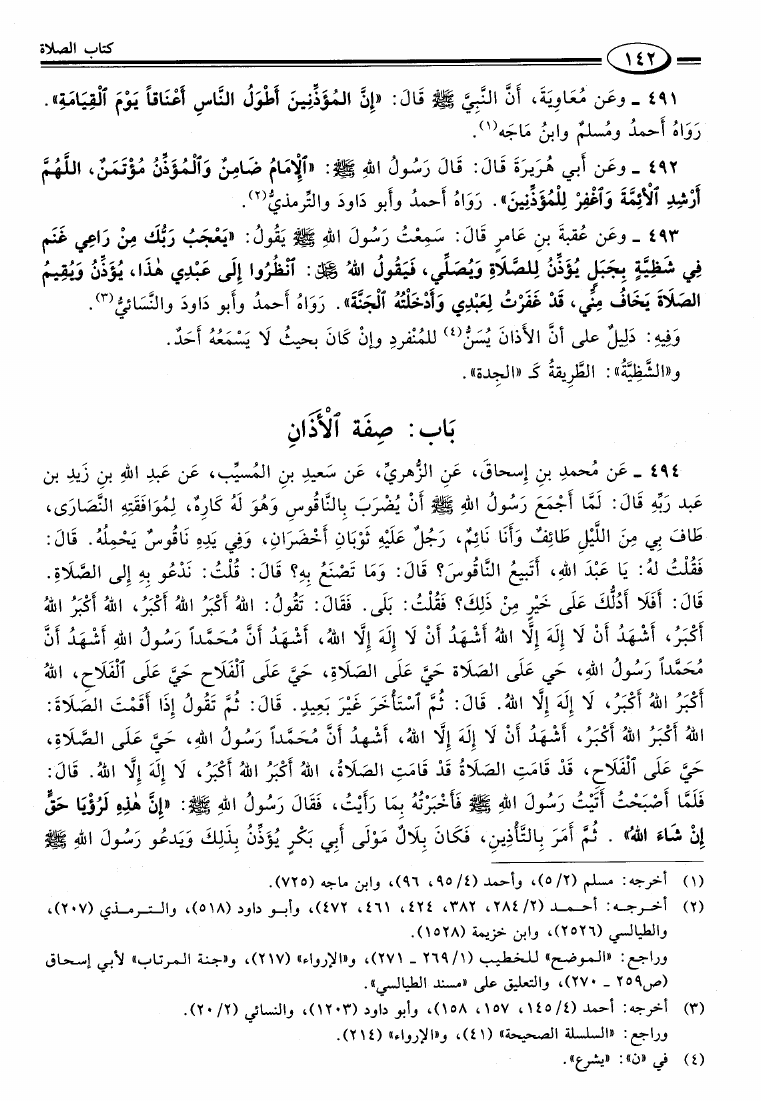 ١٤٢
كتاب الصلاة
٤٩١ ـ وعَن مُعَاوِيَةَ، أَنَّ النَّبِيَّ ﷺ قَالَ: «إِنَّ المُؤَذِّنِينَ أَطْوَلُ النَّاسِ أَعْنَاقاً يَوْمَ ٱلْقِيَامَةِ».
رَوَاهُ أَحمدُ ومُسلِمٌ وابنُ مَاجَه(١).
٤٩٢ ـ وعَن أبي هُرَيرَةَ قَالَ: قَالَ رَسُولُ اللهِ ﷺ: «ٱلْإِمَامُ ضَامِنٌ وَٱلْمُؤَذِّنُ مُؤْتَمَنٌ، اللَّهُمَّ
أَرْشِدِ ٱلْأَئِمَّةَ وَٱغْفِرْ لِلْمُؤَذِّنِينَ». رَوَاهُ أَحمدُ وأبو دَاودَ والتِّرمذيُّ(٢).
٤٩٣ ـ وعَن عُقبةَ بنِ عامرٍ قَالَ: سَمِعْتُ رَسُولَ اللهِ ﷺ يَقُولُ: «يَعْجَبُ رَبُّكَ مِنْ رَاعِي غَنَمٍ
فِي شَظِيَّةٍ بِجَبَلٍ يُؤَذِّنُ لِلصَّلَاةِ وَيُصَلِّي، فَيَقُولُ اللهُ ﷻ: ٱنْظُرُوا إِلَى عَبْدِي هٰذَا، يُؤَذِّنُ وَيُقِيمُ
الصَّلَاةَ يَخَافُ مِنِّي، قَدْ غَفَرْتُ لِعَبْدِي وَأَدْخَلْتُهُ ٱلْجَنَّةَ». رَوَاهُ أَحمدُ وأبو دَاودَ والنَّسَائيُّ(٣).
وَفِيهِ: دَلِيلٌ على أنَّ الأَذانَ يُسَنُّ(٤) للمُنْفردِ وإنْ كَانَ بحيثُ لَا يَسْمَعُهُ أَحَدٌ.
و«الشَّظِيَّةُ»: الطَّريقةُ كَـ «الجِدة».
بَاب: صِفَة ٱلْأَذَانِ
٤٩٤ ـ عَن مُحمدِ بنِ إسحاقَ، عَنِ الزُّهريِّ، عَن سَعيدِ بنِ المُسيِّبِ، عَن عَبدِ اللهِ بنِ زَيدِ بنِ
عَبد رَبِّهِ قَالَ: لَمَّا أَجْمَعَ رَسُولُ اللهِ ﷺ أَنْ يُضْرَبَ بِالنَّاقُوسِ وَهُوَ لَهُ كَارِهٌ، لِمُوَافَقَتِهِ النَّصَارَى،
طَافَ بِي مِنَ اللَّيْلِ طَائِفٌ وَأَنَا نَائِمٌ، رَجُلٌ عَلَيْهِ ثَوْبَانِ أَخْضَرَانِ، وَفِي يَدِهِ نَاقُوسٌ يَحْمِلُهُ. قَالَ:
فَقُلْتُ لهُ: يَا عَبْدَ اللهِ، أَتَبِيعُ النَّاقُوسَ؟ قَالَ: وَمَا تَصْنَعُ بِهِ؟ قَالَ: قُلْتُ: نَدْعُو بِهِ إِلى الصَّلَاةِ.
قَالَ: أَفَلَا أَدُلُّكَ عَلَى خَيْرٍ مِنْ ذَلِكَ؟ فَقُلْتُ: بَلَى. فَقَالَ: تَقُولُ: اللهُ أَكْبَرُ اللهُ أَكْبَرُ، اللهُ أَكْبَرُ اللهُ
أَكْبَرُ، أَشْهَدُ أَنْ لَا إِلَهَ إِلَّا اللهُ أَشْهَدُ أَنْ لَا إِلَهَ إِلَّا اللهُ، أَشْهَدُ أَنَّ مُحَمَّداً رَسُولُ اللهِ أَشْهَدُ أَنَّ
مُحَمَّداً رَسُولُ اللهِ، حَي عَلَى الصَّلَاة حَيَّ عَلَى الصَّلَاةِ، حَيَّ عَلَى ٱلْفَلَاحِ حَيَّ عَلَى ٱلْفَلَاحِ، اللهُ
أَكْبَرُ اللهُ أَكْبَرُ، لَا إِلَهَ إِلَّا اللهُ. قَالَ: ثُمَّ ٱسْتَأْخَرَ غَيْرَ بَعِيدٍ. قَالَ: ثُمَّ تَقُولُ إِذَا أَقَمْتَ الصَّلَاةَ:
اللهُ أَكْبَرُ اللهُ أَكْبَرُ، أَشْهَدُ أَنْ لَا إِلَهَ إِلَّا اللهُ، أَشْهدُ أَنَّ مُحَمَّداً رَسُولُ اللهِ، حَيَّ عَلَى الصَّلَاةِ،
حَيَّ عَلَى ٱلْفَلَاحِ، قَدْ قَامَتِ الصَّلَاةُ قَدْ قَامَتِ الصَّلَاةُ، اللهُ أَكْبَرُ اللهُ أَكْبَرُ، لَا إِلَهَ إِلَّا اللهُ. قَالَ:
فَلَمَّا أَصْبَحْتُ أَتَيْتُ رَسُولَ اللهِ ﷺ فَأَخبَرْتُهُ بِمَا رَأَيْتُ، فَقَالَ رَسُولُ اللهِ ﷺ: «إِنَّ هٰذِهِ لَرُؤْيَا حَقٍّ
إِنْ شَاءَ اللهُ». ثُمَّ أَمَرَ بِالتَّأْذِينِ، فَكَانَ بِلَالٌ مَوْلَى أَبِي بَكْرٍ يُؤَذِّنُ بِذَلِكَ وَيَدعُو رَسُولَ اللهِ ﷺ
(١) أخرجه: مسلم (٥/٢)، وأحمد (٩٥/٤، ٩٦)، وابن ماجه (٧٢٥).
(٢) أخرجه: أحمد (٢٨٤/٢، ٣٨٢، ٤٢٤، ٤٦١، ٤٧٢)، وأبو داود (٥١٨)، والترمذي (٢٠٧)،
والطيالسي (٢٥٢٦)، وابن خزيمة (١٥٢٨).
وراجع: «الموضح» للخطيب (٢٦٩/١ ـ ٢٧١)، و«الإرواء» (٢١٧)، و«جنة المرتاب» لأبي إسحاق
(ص٢٥٩ ـ ٢٧٠)، والتعليق على «مسند الطيالسي».
(٣) أخرجه: أحمد (١٤٥/٤، ١٥٧، ١٥٨)، وأبو داود (١٢٠٣)، والنسائي (٢٠/٢).
وراجع: «السلسلة الصحيحة» (٤١)، و«الإرواء» (٢١٤).
(٤) في «ن»: «يشرع».